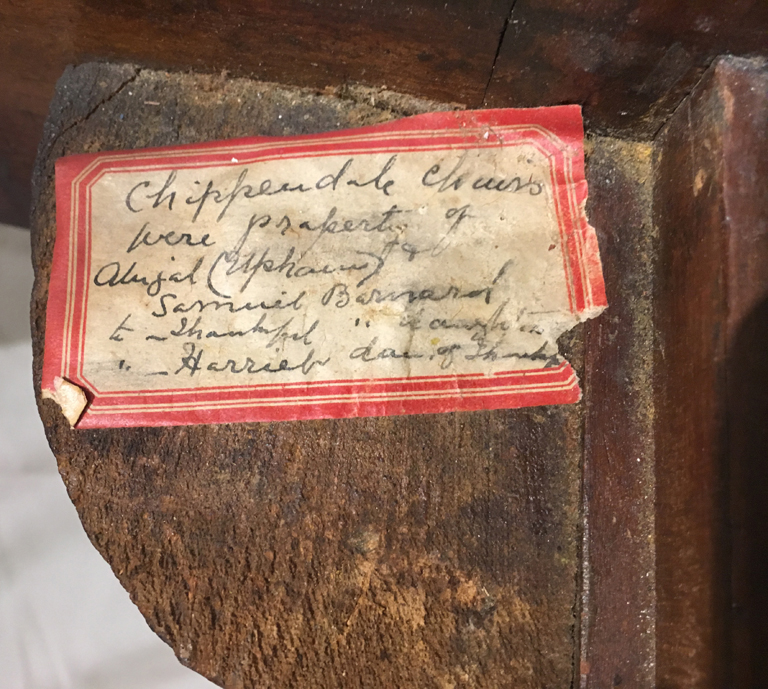 Chippendale Chairs
were property of
Abigal (Upham) &
Samuel Barnard
to - Thankful " daugh'tr
" - Harriet dau. of Thankf